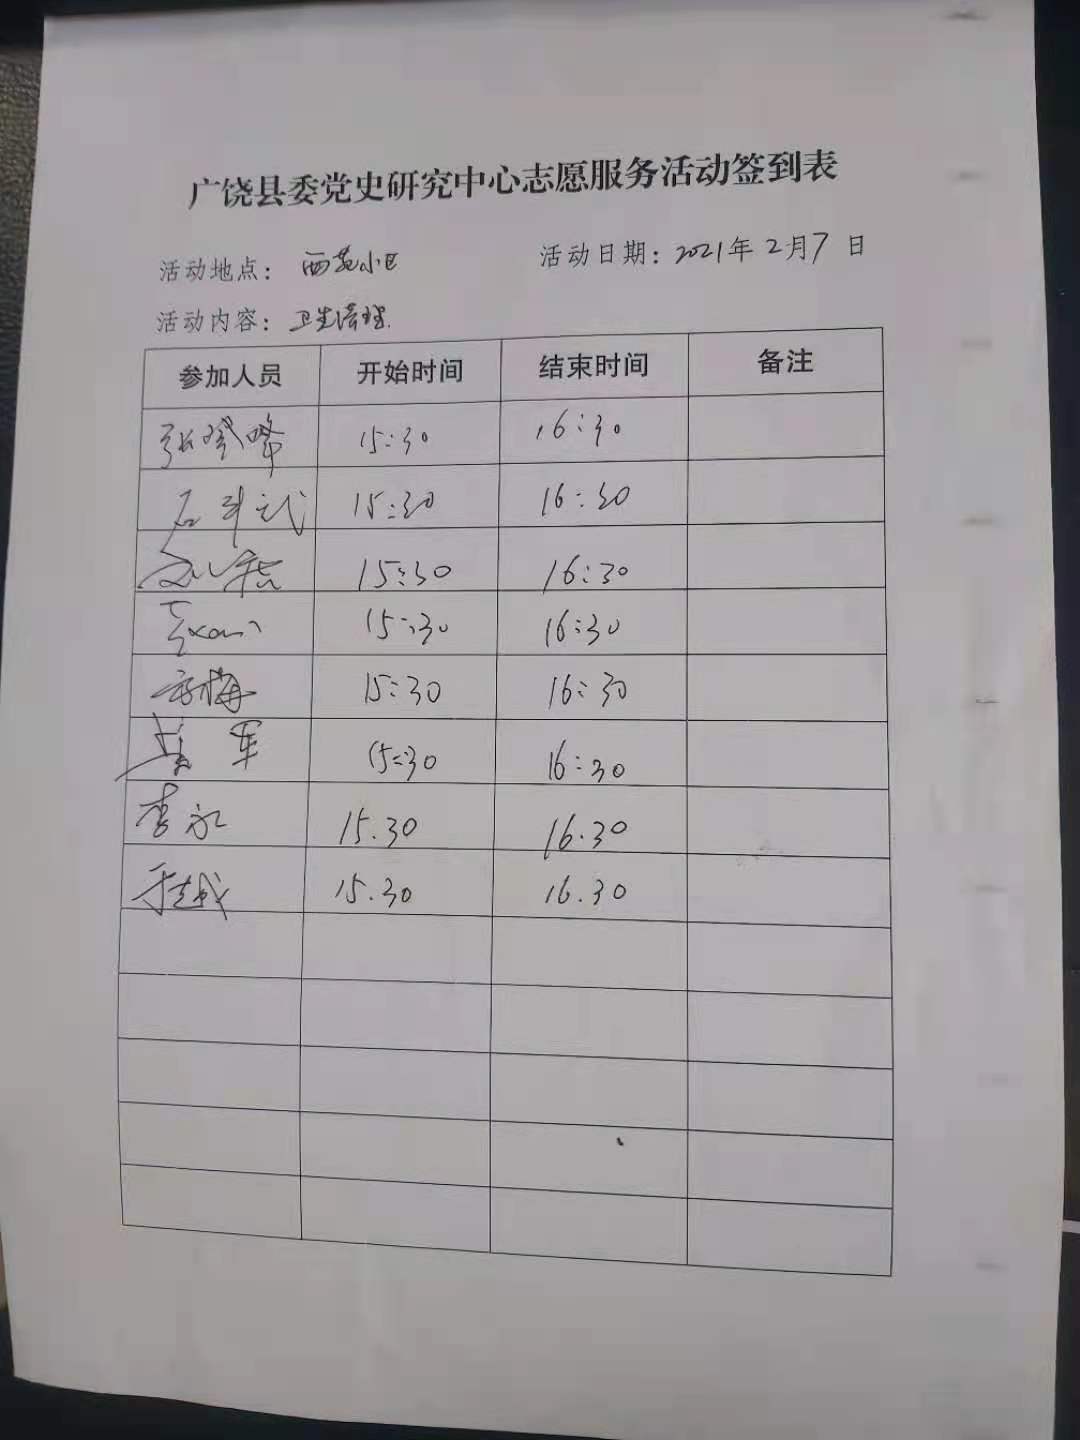 广饶县委党史研究中心志愿服务活动签到表
活动地点： 西苑小区 活动日期：2021年2月7日
活动内容：卫生清理.
参加人员 开始时间 结束时间 备注
张登峰 15:30 16:30
石斗武 15:30 16:30
15:30 16:30
15:30 16:30
梅 15:30 16:30
军 15:30 16:30
李永 15.30 16.30
于越 15.30 16.30